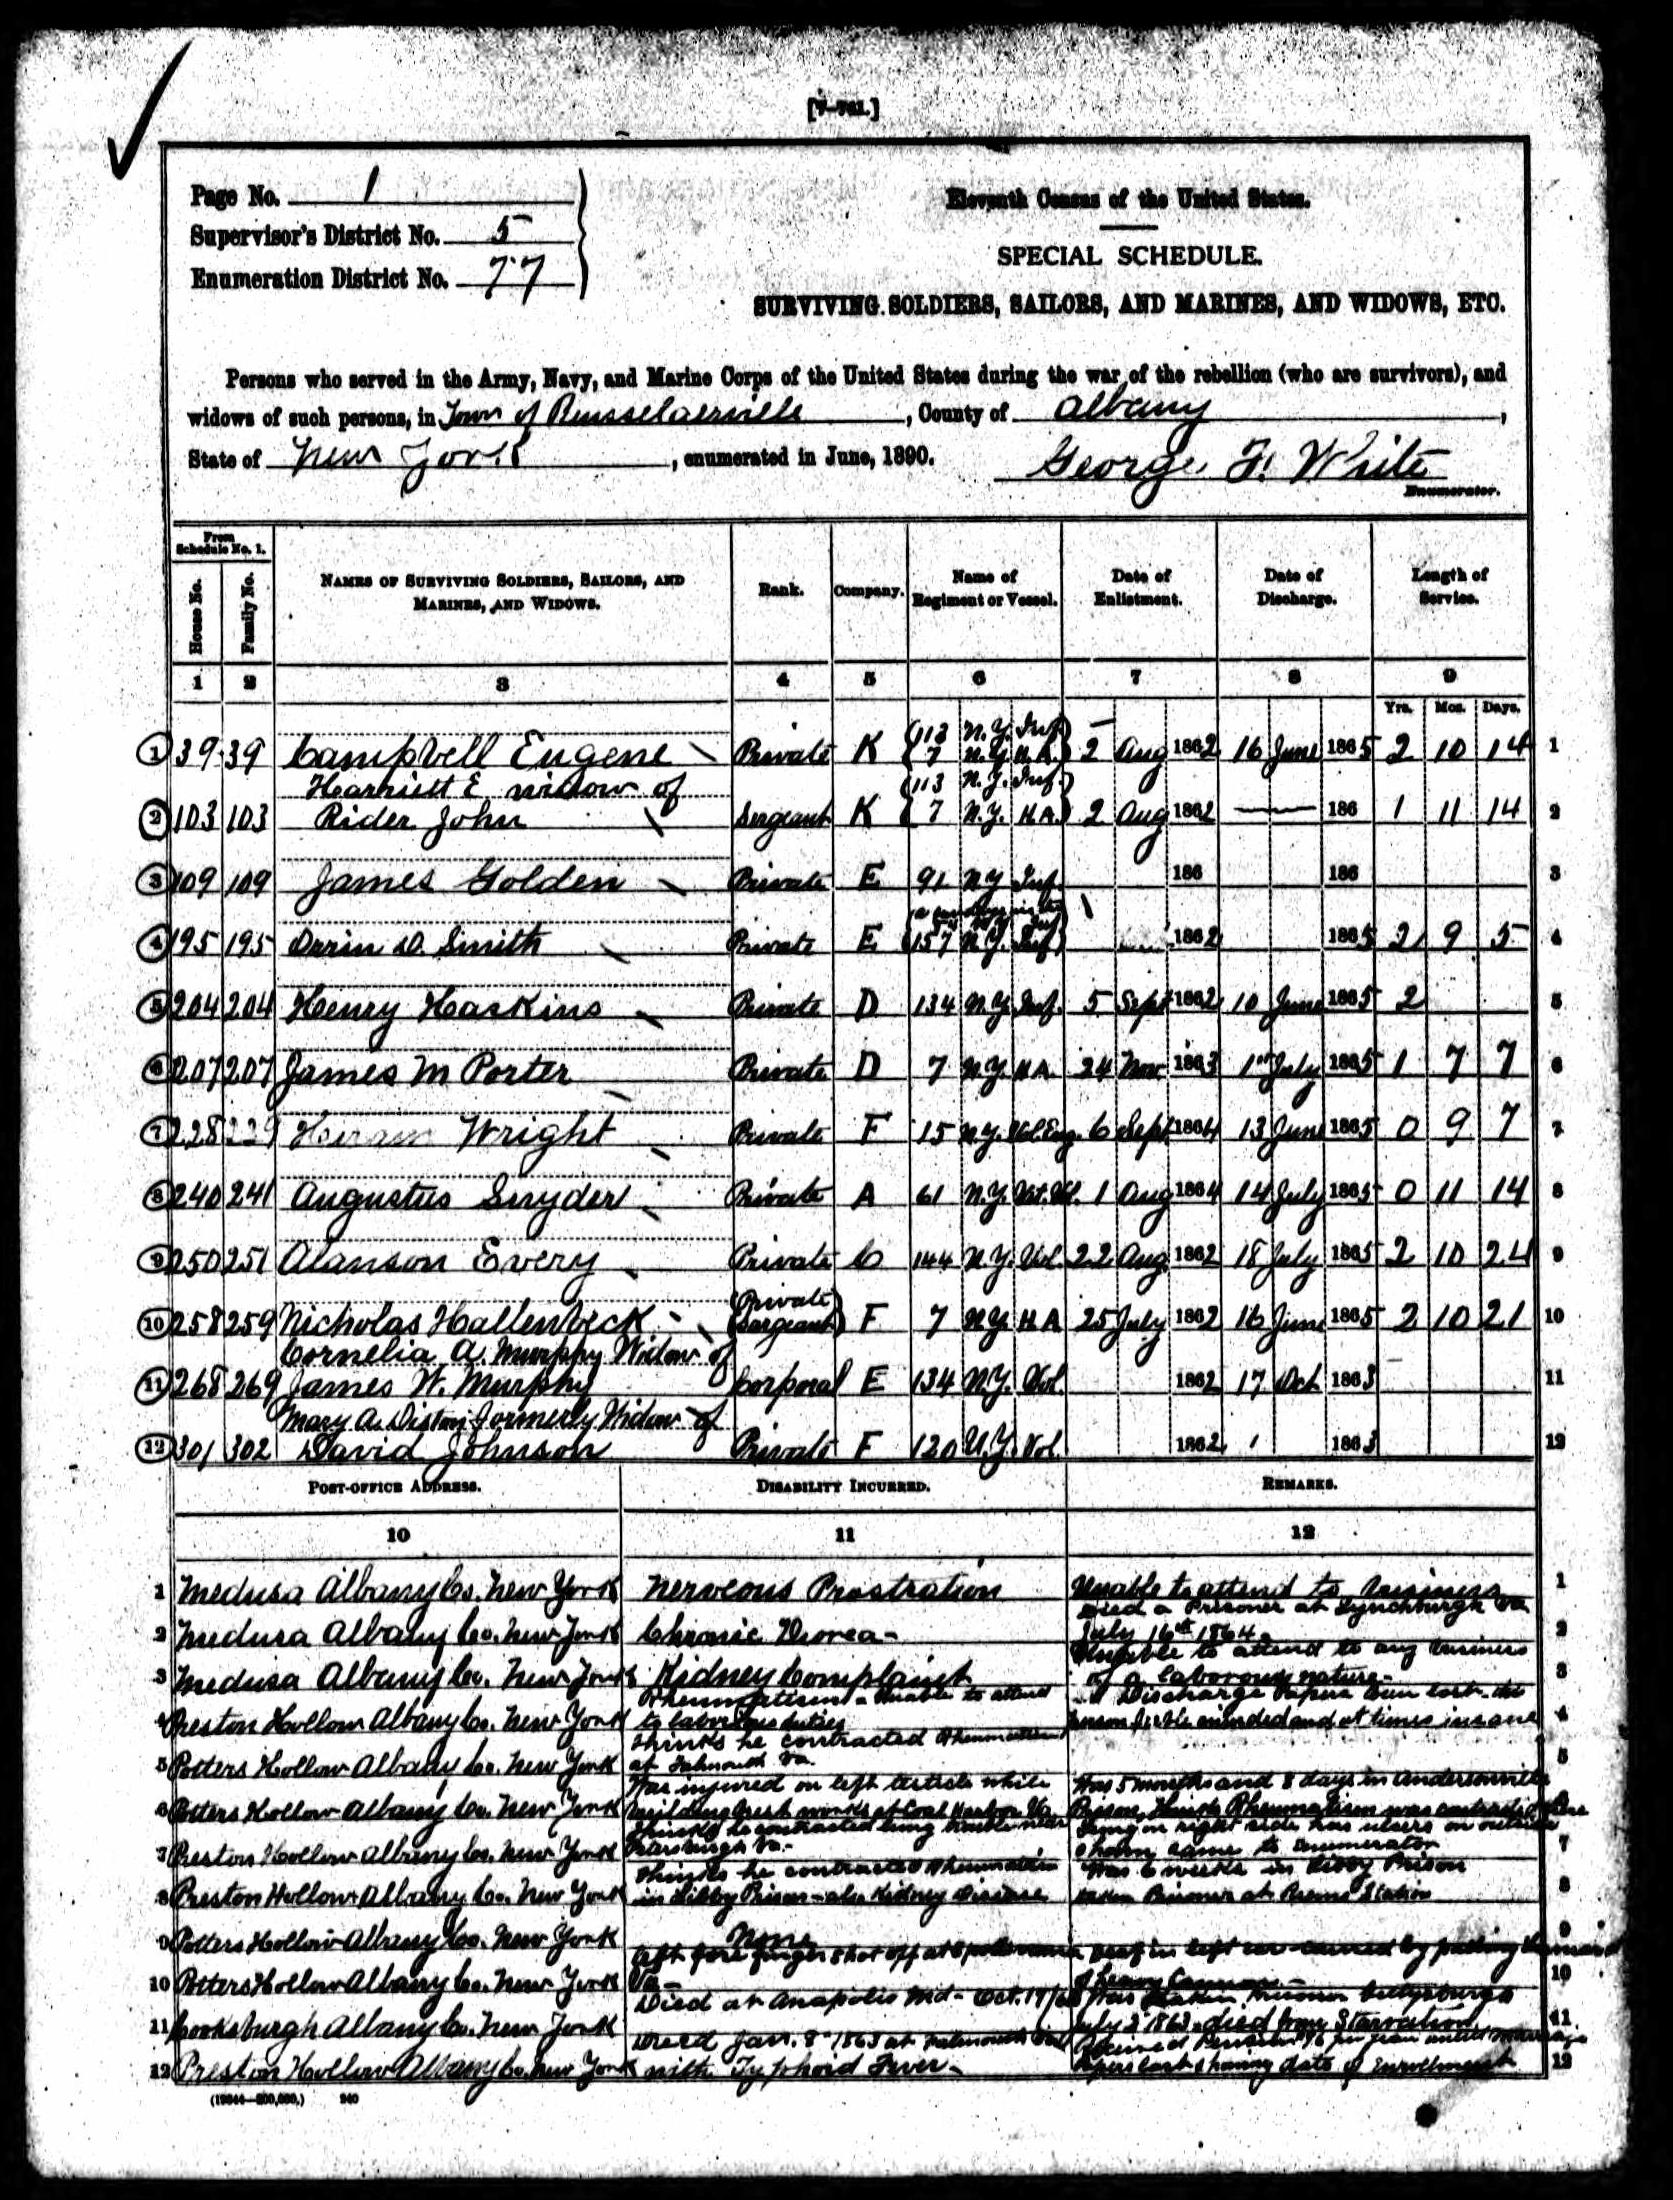 [7-731.]
Page No. 1
Supervisor's District No. 5
Enumeration District No. 77
Eleventh Census of the United States.
SPECIAL SCHEDULE.
SURVIVING SOLDIERS, SAILORS, AND MARINES, AND WIDOWS, ETC.
Persons who served in the Army, Navy, and Marine Corps of the United States during the war of the rebellion (who are survivors), and
widows of such persons, in Town of Rensselaerville, County of Albany,
State of New York, enumerated in June, 1890. George F. White
Enumerator.
From Schedule No. 1.
House No. Family No. NAMES OF SURVIVING SOLDIERS, SAILORS, AND MARINES, AND WIDOWS. Rank. Company. Name of Regiment or Vessel. Date of Enlistment. Date of Discharge. Length of Service.
1 2 3 4 5 6 7 8 9
Yrs. Mos. Days.
113 N.Y. Inf.
1 39 39 Campbell Eugene Private K 7 N.Y. H.A. 2 Aug 1862 16 June 1865 2 10 14 1
Harriett E widow of 113 N.Y. Inf.
2 103 103 Rider John Sergeant K 7 N.Y. H.A. 2 Aug 1862 186 1 11 14 2
3 109 109 James Golden Private E 91 N.Y Inf. 186 186 3
4 195 195 Orrin D. Smith Private E 157 N.Y. Inf 1862 1865 2 9 5 4
5 204 204 Henry Haskins Private D 134 N.Y. Inf. 5 Sept 1862 10 June 1865 2 5
6 207 207 James M Porter Private D 7 N.Y H.A. 24 Nov 1863 1st July 1865 1 7 7 6
7 228 229 Hiram Wright Private F 15 N.Y. Vol. Eng. 6 Sept 1864 13 June 1865 0 9 7 7
8 240 241 Augustus Snyder Private A 61 N.Y. Vet. Vol. 1 Aug 1864 14 July 1865 0 11 14 8
9 250 251 Alanson Every Private C 144 N.Y. Vol. 22 Aug 1862 18 July 1865 2 10 24 9
Private
10 258 259 Nicholas Hallenbeck Sargeant F 7 N.Y H.A 25 July 1862 16 June 1865 2 10 21 10
Cornelia A. Murphy Widow of
11 268 269 James W. Murphy Corporal E 134 N.Y. Vol. 1862 17 Oct 1863 11
Mary A. Diston formerly Widow of
12 301 302 David Johnson Private F 120 N.Y. Vol. 1862 1 1863 12
POST-OFFICE ADDRESS. DISABILITY INCURRED. REMARKS.
10 11 12
1 Medusa Albany Co. New York Nerveous Prostration Unable to attend to business 1
Died a Prisoner at Lynchburgh Va
2 Medusa Albany Co. New York Chronic Diorea- July 16th 1864. 2
Unable to attend to any business
3 Medusa Albany Co. New York Kidney Complaint of a laborous nature- 3
Rheumatism - Unable to attend Discharge Papers
4 Preston Hollow Albany Co. New York to laborious duties person feeble minded and at times insane 4
Thinks he contracted Rheumatism
5 Potters Hollow Albany Co. New York at Falmouth Va. 5
Was injured on left testicle while Was 5 months and 8 days in Andersonville
6 Potters Hollow Albany Co. New York building brest works at Coal Harbor Va Prison, Thinks Rheumatism was contracted there
Thinks he contracted lung trouble near Lung on right side has ulcers on outside
7 Preston Hollow Albany Co. New York Petersburgh Va. 7
Thinks he contracted Rheumatism Was 6 weeks in Libby Prison
8 Preston Hollow Albany Co. New York in Libby Prison - also Kidney Disease taken Prisoner at Reams Station 8
9 Potters Hollow Albany Co. New York None 9
left fore finger shot off at Spotsvania Deaf in left ear caused by
10 Potters Hollow Albany Co. New York Va - of heavy Cannon - 10
Died at Anapolis Md - Oct. 17/63 Was taken Prisoner Gettysburgh
11 Cooksburgh Albany Co. New York July 2 1863. died from Starvation 11
Died Jan. 8th 1863 at Falmouth
12 Preston Hollow Albany Co. New York with Typhord Fever - Papers lost showing date of Enrollment 12